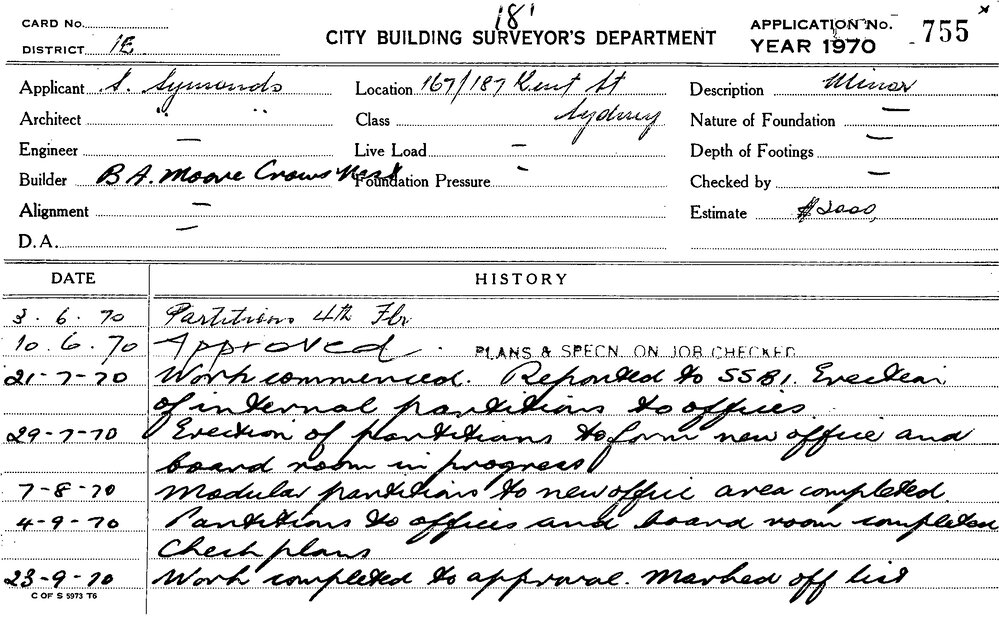 181
CARD No.
CITY BUILDING SURVEYOR'S DEPARTMENT
APPLICATION No. 755 x
DISTRICT 1E
YEAR 1970
Applicant S. Symonds Location 167/187 Kent St Description Minor
Architect " " Class Sydney Nature of Foundation —
Engineer — Live Load — Depth of Footings —
Builder B A. Moore Crows Nest Foundation Pressure - Checked by —
Alignment — Estimate $2000,
D.A. —
DATE HISTORY
3. 6. 70 Partitions 4th Flr
10. 6. 70 Approved. PLANS & SPECN. ON JOB CHECKED
21-7-70 Work commenced. Reported to SSB1. Erection
of internal partitions to offices
29-7-70 Erection of partitions to form new office and
board room in progress
7-8-70 Modular partitions to new office area completed.
4-9-70 Partitions to offices and board room completed
Check plans
23-9-70 Work completed to approval. Marked off list
C OF S 5973 T6